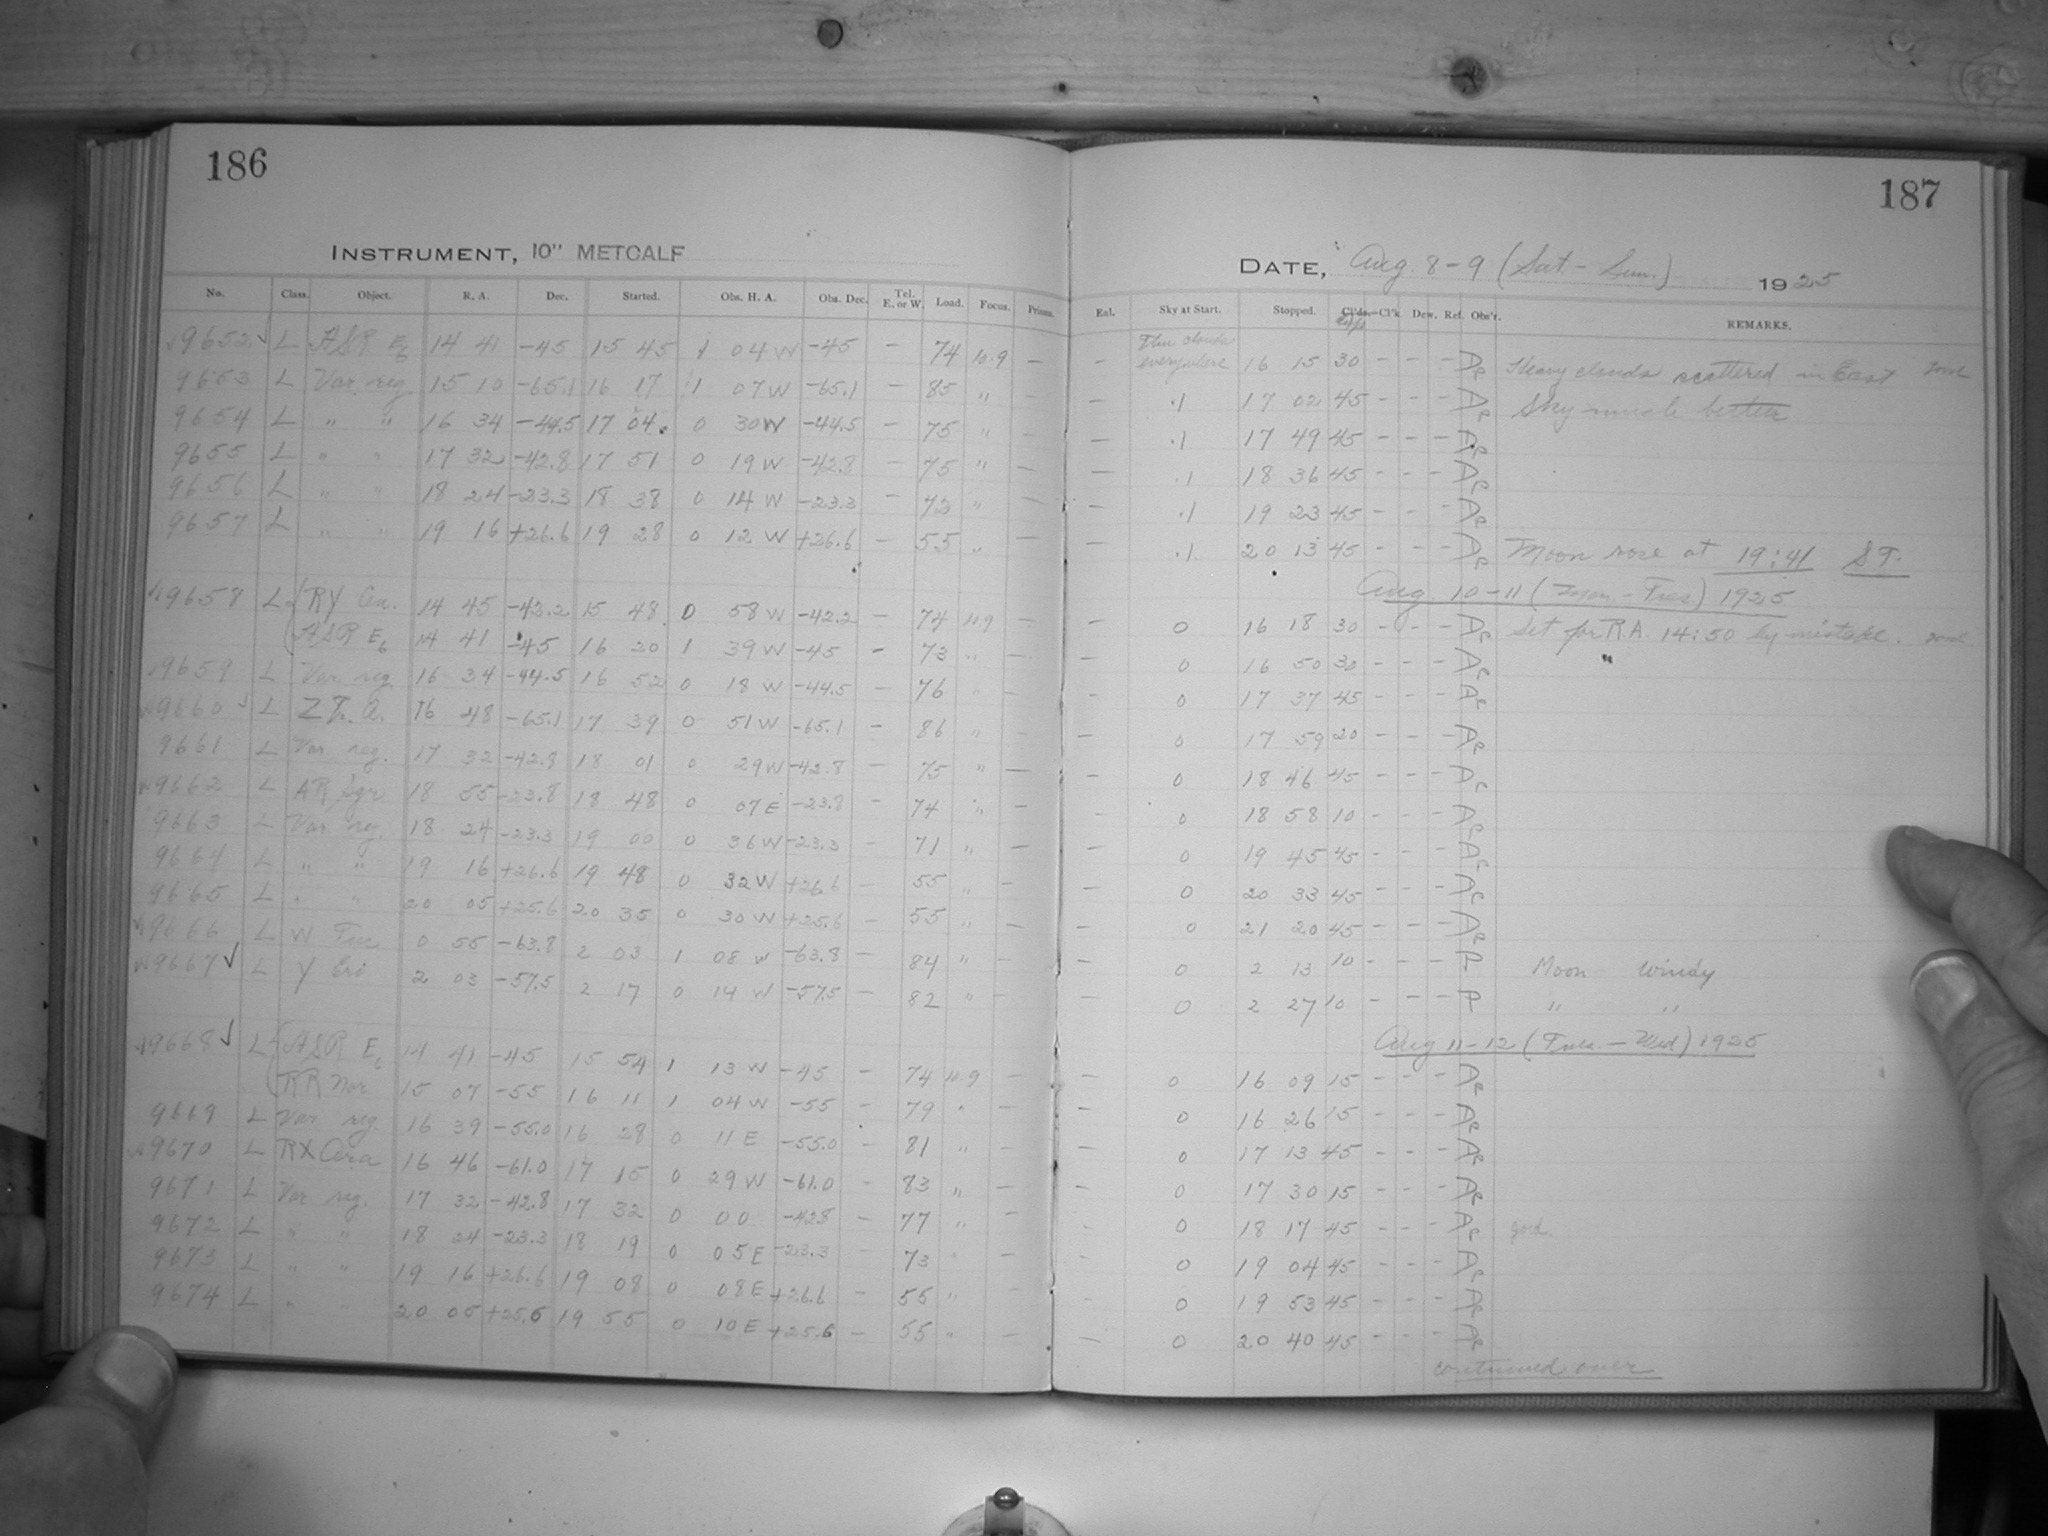 186
INSTRUMENT, 10" METCALF
No. Class. Object. R. A. Dec. Started. Obs. H. A. Obs. Dec. Tel. E. or W. Load. Focus. Prisms.
9652 L HSR E6 14 41 -45 15 45 1 04 W -45 - 74 10.9 -
9653 L Var reg. 15 10 -65.1 16 17 1 07 W -65.1 - 85 " -
9654 L " " 16 34 -44.5 17 04 0 30 W -44.5 - 75 " -
9655 L " " 17 32 -42.8 17 51 0 19 W -42.8 - 75 " -
9656 L " " 18 24 -23.3 18 38 0 14 W -23.3 - 73 " -
9657 L " " 19 16 +26.6 19 28 0 12 W +26.6 - 55 " -
9658 L RY Cen. 14 45 -42.2 15 48 0 58 W -42.2 - 74 10.9 -
HSR E6 14 41 -45 16 20 1 39 W -45 - 73 " -
9659 L Var reg 16 34 -44.5 16 52 0 18 W -44.5 - 76 " -
9660 L Z Tr. A. 16 48 -65.1 17 39 0 51 W -65.1 - 86 " -
9661 L Var reg. 17 32 -42.8 18 01 0 29 W -42.8 - 75 " -
9662 L AR Sgr 18 55 -23.8 18 48 0 07 E -23.8 - 74 " -
9663 L Var reg. 18 24 -23.3 19 00 0 36 W -23.3 - 71 " -
9664 L " " 19 16 +26.6 19 48 0 32 W +26.6 - 55 " -
9665 L " " 20 05 +25.6 20 35 0 30 W +25.6 - 55 " -
9666 L W Tuc 0 55 -63.8 2 03 1 08 W -63.8 - 84 " -
9667 L Y Eri 2 03 -57.5 2 17 0 14 W -57.5 - 82 " -
9668 L HSR E6 14 41 -45 15 54 1 13 W -45 - 74 10.9 -
RR Nor 15 07 -55 16 11 1 04 W -55 - 79 " -
9669 L Var reg. 16 39 -55.0 16 28 0 11 E -55.0 - 81 " -
9670 L RX Ara 16 46 -61.0 17 15 0 29 W -61.0 - 83 " -
9671 L Var reg. 17 32 -42.8 17 32 0 00 -42.8 - 77 " -
9672 L " " 18 24 -23.3 18 19 0 05 E -23.3 - 73 " -
9673 L " " 19 16 +26.6 19 08 0 08 E +26.6 - 55 " -
9674 L " " 20 05 +25.6 19 55 0 10 E +25.6 - 55 " -
187
DATE, Aug. 8-9 (Sat.- Sun.) 1925
Enl. Sky at Start. Stopped. Cl'ds. Cl'k Dew. Ref. Obs'r. REMARKS.
Thin clouds
- everywhere 16 15 30 - - - Heavy clouds scattered in East
- .1 17 02 45 - - - Sky much better
- .1 17 49 45 - - -
- .1 18 36 45 - - -
- .1 19 23 45 - - -
- .1 20 13 45 - - - Moon rose at 19:41 S.T.
Aug 10-11 (Mon.-Tues) 1925
- 0 16 18 30 - - - Set for R.A. 14:50 by mistake.
- 0 16 50 30 - - - "
- 0 17 37 45 - - -
- 0 17 59 20 - - -
- 0 18 46 45 - - -
- 0 18 58 10 - - -
- 0 19 45 45 - - -
- 0 20 33 45 - - -
- 0 21 20 45 - - -
- 0 2 13 10 - - - Moon windy
- 0 2 27 10 - - - " "
Aug 11-12 (Tues.-Wed) 1925
- 0 16 09 15 - - -
- 0 16 26 15 - - -
- 0 17 13 45 - - -
- 0 17 30 15 - - -
- 0 18 17 45 - - - good.
- 0 19 04 45 - - -
- 0 19 53 45 - - -
- 0 20 40 45 - - -
continued over